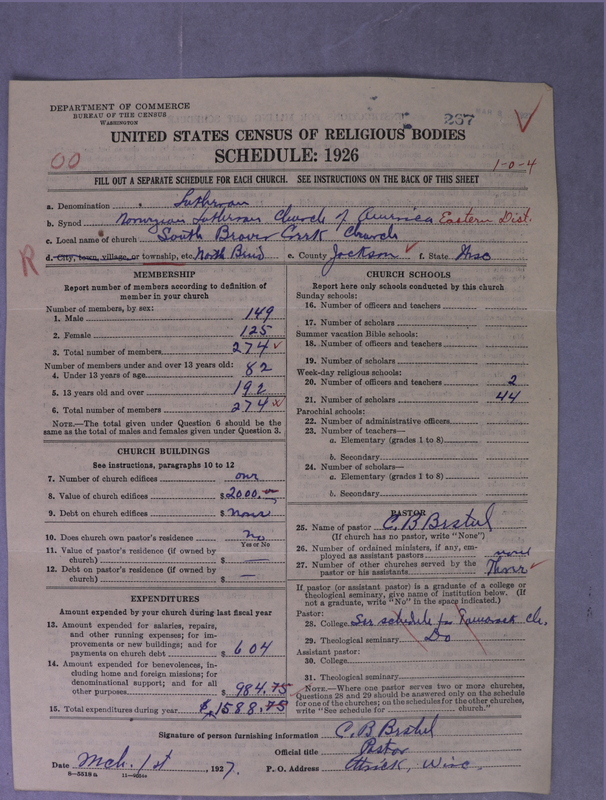 DEPARTMENT OF COMMERCE
BUREAU OF THE CENSUS
WASHINGTON
267
UNITED STATES CENSUS OF RELIGIOUS BODIES
SCHEDULE: 1926
00
1-0-4
FILL OUT A SEPARATE SCHEDULE FOR EACH CHURCH. SEE INSTRUCTIONS ON THE BACK OF THIS SHEET
a. Denomination Lutheran
b. Synod Norwegian Lutheran Church of America Eastern Dist.
c. Local name of church South Church
R d. City, town, village, or township, etc. North Bend e. County Jackson f. State Wisc
MEMBERSHIP
Report number of members according to definition of
member in your church
Number of members, by sex:
1. Male 149
2. Female 125
3. Total number of members 274
Number of members under and over 13 years old:
4. Under 13 years of age 82
5. 13 years old and over 192
6. Total number of members 274
NOTE.—The total given under Question 6 should be the
same as the total of males and females given under Question 3.
CHURCH BUILDINGS
See instructions, paragraphs 10 to 12
7. Number of church edifices one
8. Value of church edifices $2000.
9. Debt on church edifices $ None
10. Does church own pastor's residence? No
Yes or No
11. Value of pastor's residence (if owned by
church) $ —
12. Debt on pastor's residence (if owned by
church) $ —
EXPENDITURES
Amount expended by your church during last fiscal year
13. Amount expended for salaries, repairs,
and other running expenses; for im-
provements or new buildings; and for
payments on church debt $ 604
14. Amount expended for benevolences, in-
cluding home and foreign missions; for
denominational support; and for all
other purposes $ 984.75
15. Total expenditures during year $ 1588.75
CHURCH SCHOOLS
Report here only schools conducted by this church
Sunday schools:
16. Number of officers and teachers
17. Number of scholars
Summer vacation Bible schools:
18. Number of officers and teachers
19. Number of scholars
Week-day religious schools:
20. Number of officers and teachers 2
21. Number of scholars 44
Parochial schools:
22. Number of administrative officers
23. Number of teachers—
a. Elementary (grades 1 to 8)
b. Secondary
24. Number of scholars—
a. Elementary (grades 1 to 8)
b. Secondary
PASTOR
25. Name of pastor C. B.
(If church has no pastor, write "None")
26. Number of ordained ministers, if any, em-
ployed as assistant pastors none
27. Number of other churches served by the
pastor or his assistants Three
If pastor (or assistant pastor) is a graduate of a college or
theological seminary, give name of institution below. (If
not a graduate, write "No" in the space indicated.)
Pastor:
28. College See schedule for Ch.
29. Theological seminary Do
Assistant pastor:
30. College
31. Theological seminary
NOTE.—Where one pastor serves two or more churches,
Questions 28 and 29 should be answered only on the schedule
for one of the churches; on the schedules for the other churches,
write "See schedule for church."
Signature of person furnishing information C. B.
Official title Pastor
Date Mch. 1st, 1927. P. O. Address Ettrick, Wisc.
8—5518a